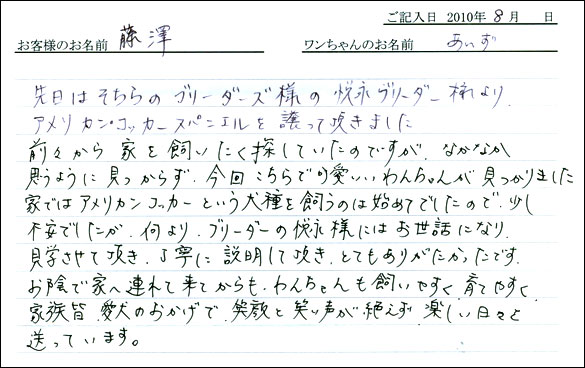 ご記入日 2010年 8月 日
お客様のお名前 藤澤 ワンちゃんのお名前 あいず
先日はそちらのブリーダーズ様の悦永ブリーダー様より、
アメリカン・コッカースパニエルを譲って頂きました
前々から家を飼いたく探していたのですが、なかなか
思うように見つからず、今回こちらで可愛いわんちゃんが見つかりました
家ではアメリカンコッカーという犬種を飼うのは始めてでしたので、少し
不安でしたが、何より、ブリーダーの悦永様にはお世話になり、
見学させて頂き、丁寧に説明して頂き、とてもありがたかったです。
お陰で家へ連れて来てからも、わんちゃんも飼いやすく、育てやすく、
家族皆、愛犬のおかげで、笑顔と笑い声が絶えず、楽しい日々を
送っています。